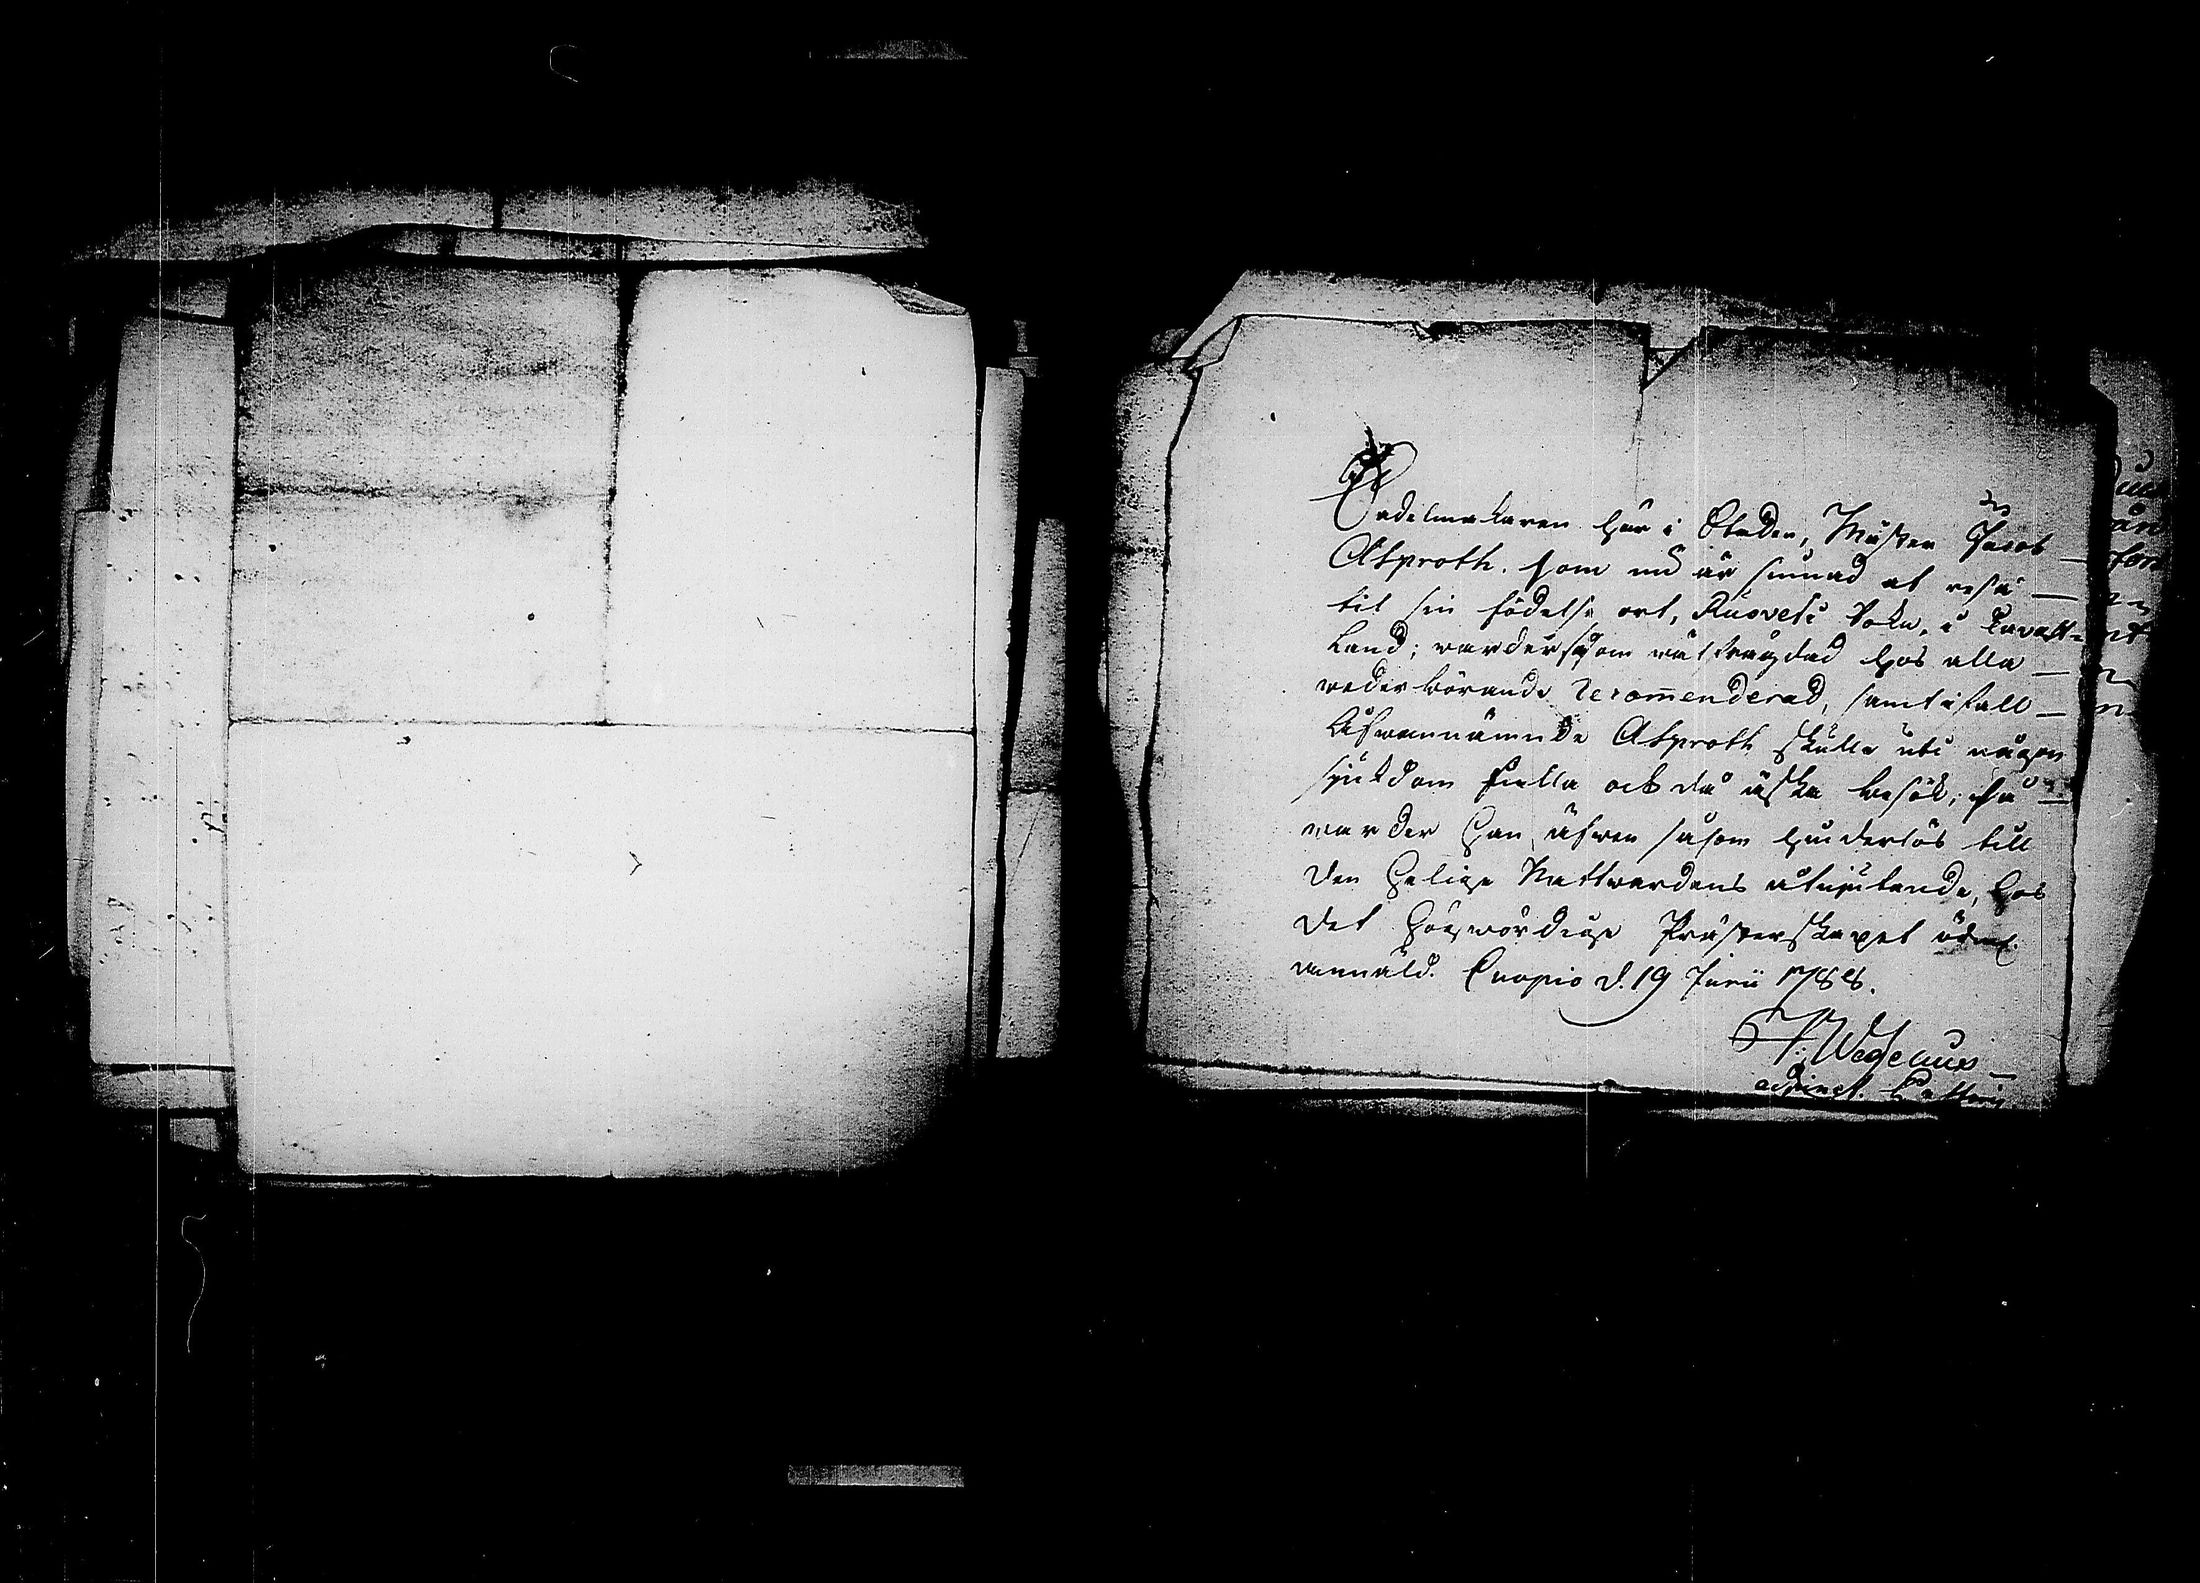 Sadelmakaren här i Staden, Mäster Jacob
Alsproth. som nu är sinnad at resa
til sin födelse ort, Ruovesi Sokn, i Tavast-
Land; varder såsom välfrägdad hos alla
vederbörande recom̄enderad, samt ifall
äfvannämnde Alsproth skulle uti någon
sjukdom falla och då äska besök; så
varder han äfven såsom hinderlös till
den Helige Nattvardens åtnjutande, hos
det Högvördige Prästerskapet ödmj.
anmäld. Cuopio d. 19 Junii 1788.
Wegelius
adjunct.